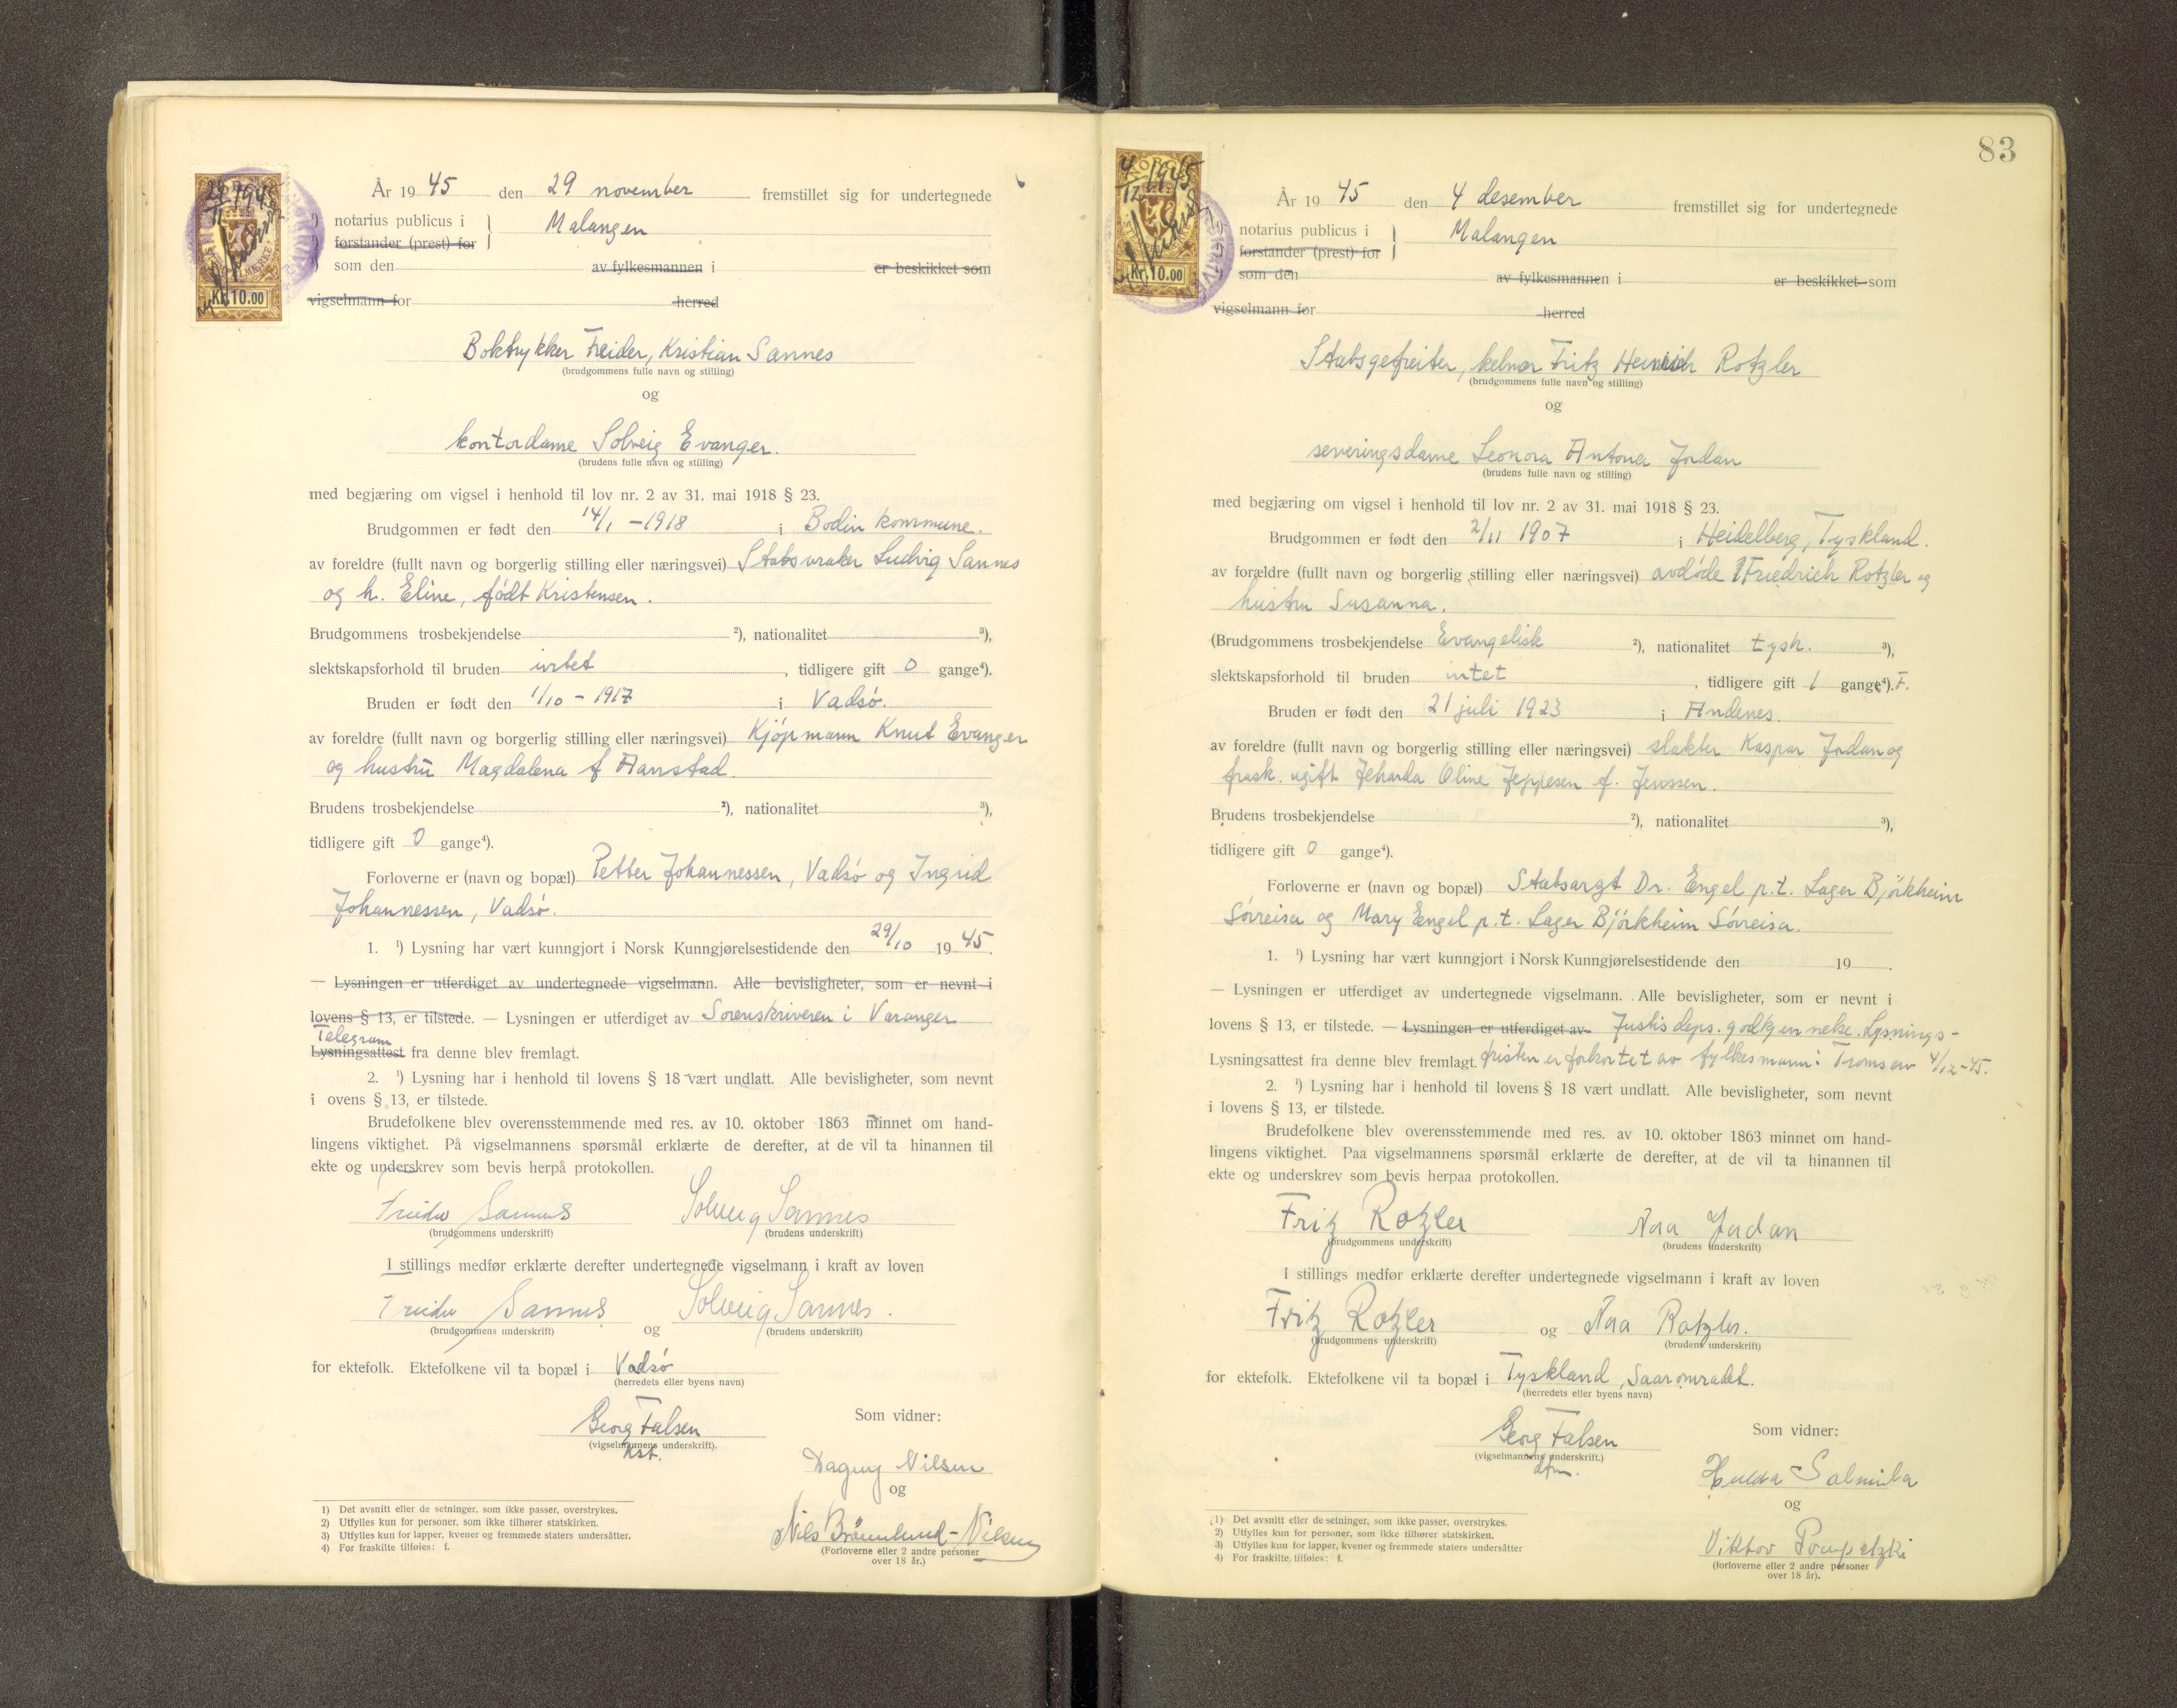 År 1945 den 29 november fremstillet sig for undertegnede
notarius publicus i Malangen
forstander (prest) for
som den av fylkesmannen i er beskikket som
vigselmann for herred
Kr. 10.00
Boktrykker Freider, Kristian Sannes
(brudgommens fulle navn og stilling)
og
kontordame Solveig Evanger.
(brudens fulle navn og stilling)
med begjæring om vigsel i henhold til lov nr. 2 av 31. mai 1918 § 23.
Brudgommen er født den 14/1 - 1918 i Bodin kommune.
av foreldre (fullt navn og borgerlig stilling eller næringsvei) Ludvig Sannes
og h. Eline, født Kristensen.
Brudgommens trosbekjendelse ²), nationalitet ³),
slektskapsforhold til bruden intet, tidligere gift 0 gange⁴).
Bruden er født den 1/10 - 1917 i Vadsø.
av foreldre (fullt navn og borgerlig stilling eller næringsvei) Kjøpmann Knut Evanger
og hustru Magdalena f. Aarstad.
Brudens trosbekjendelse ²), nationalitet ³),
tidligere gift 0 gange⁴).
Forloverne er (navn og bopæl) Petter Johannessen, Vadsø og Ingrid
Johannessen, Vadsø.
1. ¹) Lysning har vært kunngjort i Norsk Kunngjørelsestidende den 29/10 1945.
— Lysningen er utferdiget av undertegnede vigselmann. Alle bevisligheter, som er nevnt i
lovens § 13, er tilstede. — Lysningen er utferdiget av Sorenskriveren i Varanger
Telegram
Lysningsattest fra denne blev fremlagt.
2. ¹) Lysning har i henhold til lovens § 18 vært undlatt. Alle bevisligheter, som nevnt
i ovens § 13, er tilstede.
Brudefolkene blev overensstemmende med res. av 10. oktober 1863 minnet om hand-
lingens viktighet. På vigselmannens spørsmål erklærte de derefter, at de vil ta hinannen til
ekte og underskrev som bevis herpå protokollen.
Sannes Solveig Sannes
(brudgommens underskrift) (brudens underskrift)
I stillings medfør erklærte derefter undertegnede vigselmann i kraft av loven
Sannes Solveig Sannes.
(brudgommens underskrift) og (brudens underskrift)
for ektefolk. Ektefolkene vil ta bopæl i Vadsø
(herredets eller byens navn)
Georg Falsen
(vigselmannens underskrift).
kst.
Som vidner:
Dagny Nilsen
og
Nils Brönnlund-Nilsen
(Forloverne eller 2 andre personer
over 18 år.)
1) Det avsnitt eller de setninger, som ikke passer, overstrykes.
2) Utfylles kun for personer, som ikke tilhører statskirken.
3) Utfylles kun for lapper, kvener og fremmede staters undersåtter.
4) For fraskilte tilføies: f.
83
År 1945 den 4 desember fremstillet sig for undertegnede
notarius publicus i Malangen
forstander (prest) for
som den av fylkesmannen i er beskikket som
vigselmann for herred
Kr. 10.00
Stabsgefreiter, kelner Fritz Heinrich Rotzler
(brudgommens fulle navn og stilling)
og
severingsdame Leonora Antona Jordan
(brudens fulle navn og stilling)
med begjæring om vigsel i henhold til lov nr. 2 av 31. mai 1918 § 23.
Brudgommen er født den 2/11 1907 i Heidelberg, Tyskland.
av forældre (fullt navn og borgerlig stilling eller næringsvei) avdøde Friedrich Rotzler og
hustru Susanna.
(Brudgommens trosbekjendelse Evangelisk ²), nationalitet tysk. ³),
slektskapsforhold til bruden intet, tidligere gift 1 gange⁴). F.
Bruden er født den 21 juli 1923 i Andenes.
av foreldre (fullt navn og borgerlig stilling eller næringsvei) slakter Kaspar Jordan og
frask. ugift Oline Jeppesen f. Jenssen.
Brudens trosbekjendelse ²), nationalitet ³),
tidligere gift 0 gange⁴).
Forloverne er (navn og bopæl) Stabsarzt Dr. Engel p.t. Lager Bjørkheim
Sørreisa og Mary Engel p.t. Lager Bjørkheim Sørreisa.
1. ¹) Lysning har vært kunngjort i Norsk Kunngjørelsestidende den 19 .
— Lysningen er utferdiget av undertegnede vigselmann. Alle bevisligheter, som er nevnt i
lovens § 13, er tilstede. — Lysningen er utferdiget av Justisdeps. godkjennelse. Lysnings-
Lysningsattest fra denne blev fremlagt. fristen er forkortet av fylkesmann i Troms av 4/12-45.
2. ¹) Lysning har i henhold til lovens § 18 vært undlatt. Alle bevisligheter, som nevnt
i lovens § 13, er tilstede.
Brudefolkene blev overensstemmende med res. av 10. oktober 1863 minnet om hand-
lingens viktighet. Paa vigselmannens spørsmål erklærte de derefter, at de vil ta hinannen til
ekte og underskrev som bevis herpaa protokollen.
Fritz Rotzler Nora Jordan
(brudgommens underskrift) (brudens underskrift)
I stillings medfør erklærte derefter undertegnede vigselmann i kraft av loven
Fritz Rotzler og Nora Rotzler.
(brudgommens underskrift) (brudens underskrift)
for ektefolk. Ektefolkene vil ta bopæl i Tyskland, Saarområdet.
(herredets eller byens navn)
Georg Falsen
(vigselmannens underskrift.)
dfm.
Som vidner:
Hulda Salmila
og
Viktor
(forloverne eller 2 andre personer
over 18 år).
1) Det avsnitt eller de setninger, som ikke passer, overstrykes.
2) Utfylles kun for personer, som ikke tilhører statskirken.
3) Utfylles kun for lapper, kvener og fremmede staters undersåtter
4) For fraskilte tilføies: f.